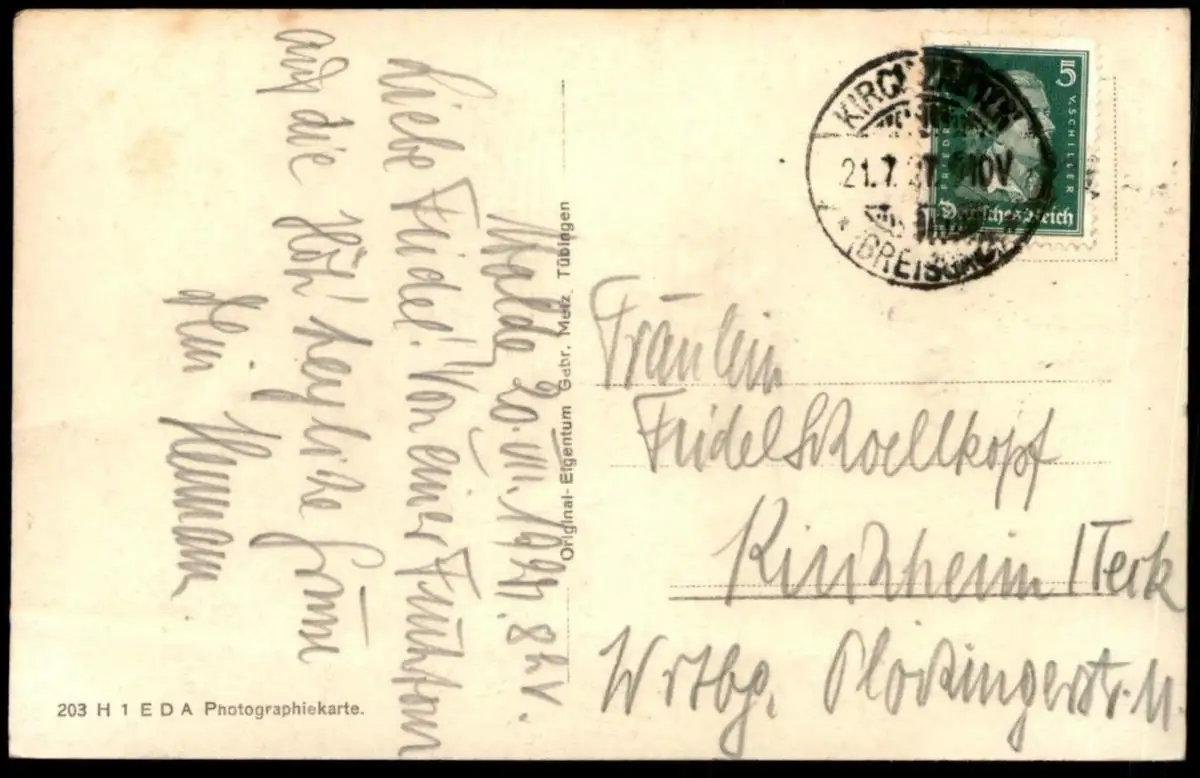 Walde, 20.VII.1927. 8 h v.
Liebe Fridel! Von einer Frühtour
auf die Höh' herzliche Grüße
Dein Hermann
Original-Eigentum Gebr. Metz, Tübingen
203 H 1 E D A Photographiekarte.
KIRCHZARTEN
21.7.27. 10V
(BREISGAU)
5
FRIEDR. V. SCHILLER
Deutsches Reich
Fräulein
Fridel Schoellkopf
Kirchheim / Teck
Wrtbg. Plochingerstr.